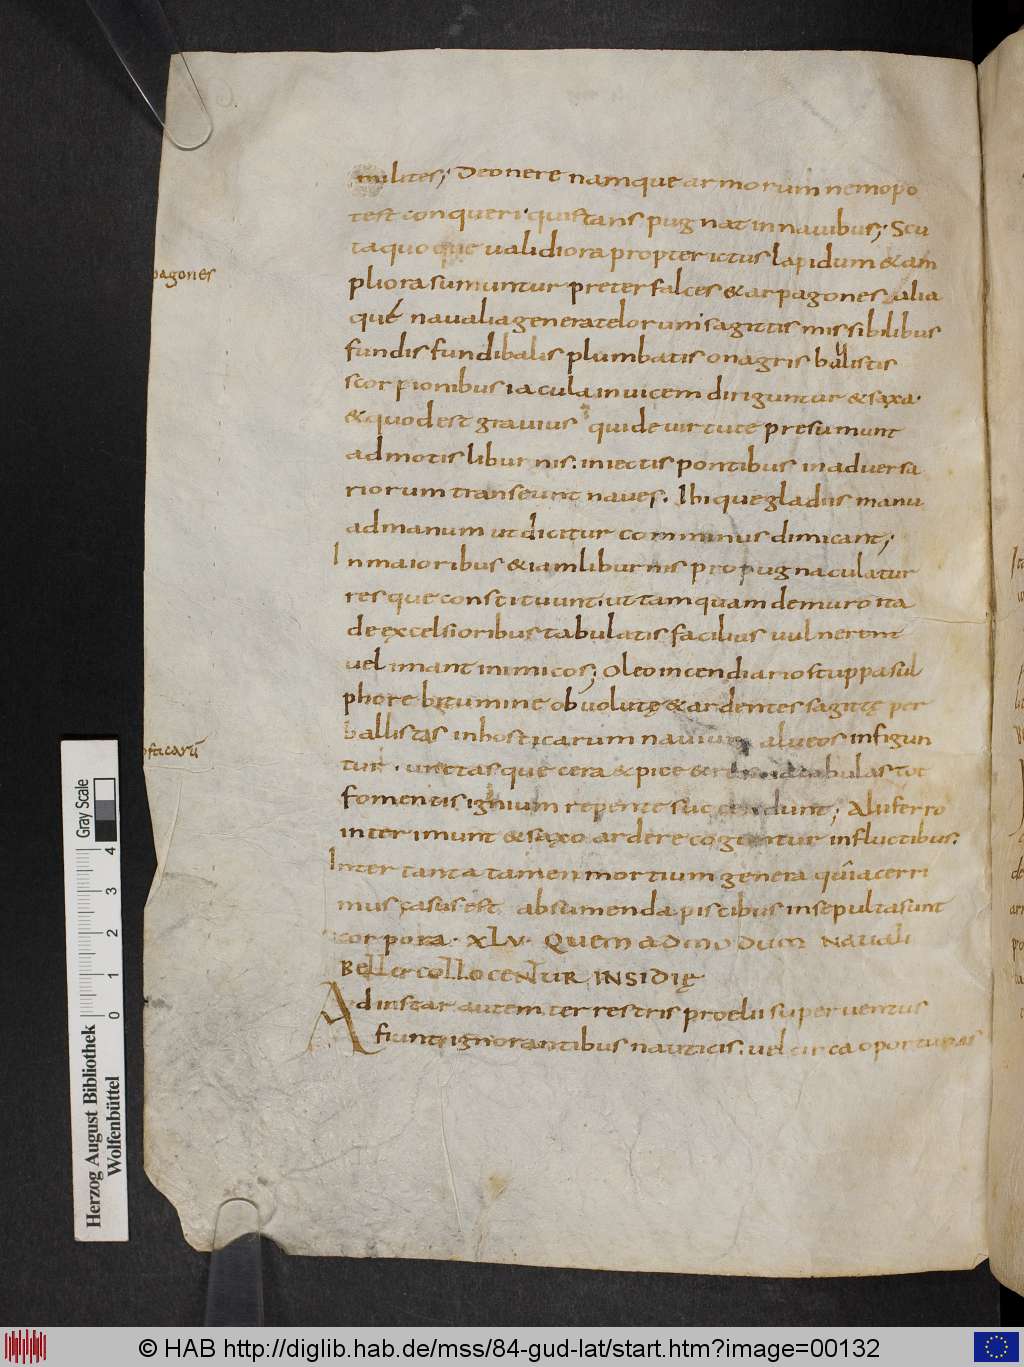 milites; De onere namque armorum nemo po
test conqueri qui stans pugnat in navibus; Scu
ta quoque validiora propter ictus lapidum & am
pagones
pliora sumuntur preter falces & arpagones alia
que navalia genera telorum sagittis missibilibus
fundis fundibalis plumbatis onagris ballistis
scorpionibus iacula invicem diriguntur & saxa.
& quod est gravius qui de virtute presumunt
admotis liburnis. iniectis pontibus in adversa
riorum transeunt naves. Ibique gladiis manu
ad manum ut dicitur comminus dimicant;
In maioribus &iam liburnis propugnacula tur
resque constituunt. ut tamquam de muro ita
de excelsioribus tabulatis facilius vulnerent
vel imant inimicos; Oleo incendiario stuppa sul
phore bitumine obvolutę & ardentes sagittę per
ballistas in hosticarum navium alveos infigun
sticarū
tur. unctasque cera & pice & resina tabulas tot
fomentis ignium repente succendunt; Alii ferro
interimunt & saxo ardere coguntur in fluctibus.
Inter tanta tamen mortium genera qui acerri
mus casus est absumenda piscibus insepulta sunt
corpora. XLV. Quemadmodum navali
Bello collocentur INSIDIĘ
Ad instar autem terrestris proelii superventus
fiunt ignorantibus nauticis. vel circa oportunas
Gray Scale
0 1 2 3 4
Herzog August Bibliothek
Wolfenbüttel
© HAB http://diglib.hab.de/mss/84-gud-lat/start.htm?image=00132